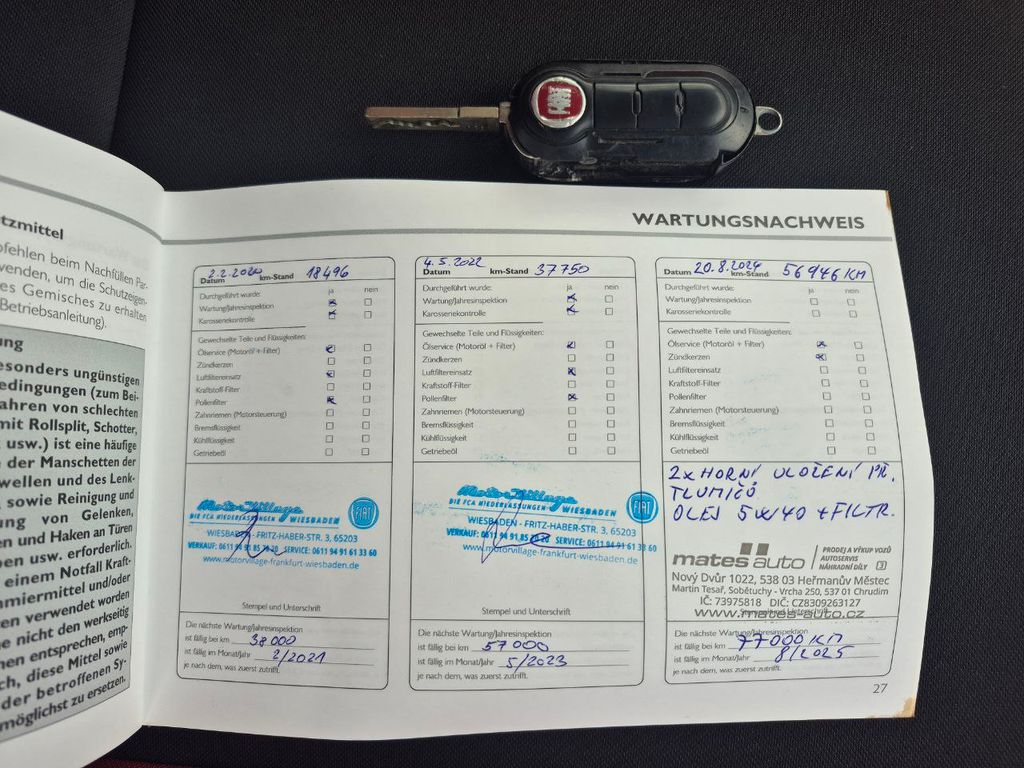 tzmittel
pfehlen beim Nachfüllen Par-
venden, um die Schutzeigen-
es Gemisches zu erhalten
Betriebsanleitung).
ung
esonders ungünstigen
edingungen (zum Bei-
ahren von schlechten
mit Rollsplit, Schotter,
usw.) ist eine häufige
e der Manschetten der
wellen und des Lenk-
sowie Reinigung und
ung von Gelenken,
en und Haken an Türen
en usw. erforderlich.
einem Notfall Kraft-
hmiermittel und/oder
en verwendet worden
e nicht den werkseitig
hen entsprechen, emp-
ch, diese Mittel sowie
der betroffenen Sy-
möglichst zu ersetzen.
FIAT
WARTUNGSNACHWEIS
Datum 2.2.2020 km-Stand 18496
Durchgeführt wurde: ja nein
Wartung/Jahresinspektion
Karosseriekontrolle
Gewechselte Teile und Flüssigkeiten:
Ölservice (Motoröl + Filter)
Zündkerzen
Luftfiltereinsatz
Kraftstoff-Filter
Pollenfilter
Zahnriemen (Motorsteuerung)
Bremsflüssigkeit
Kühlflüssigkeit
Getriebeöl
Motor Village
DIE FCA NIEDERLASSUNGEN WIESBADEN
FIAT
WIESBADEN - FRITZ-HABER-STR. 3, 65203
VERKAUF: 0611 94 91 85 20 20 SERVICE: 0611 94 91 61 33 60
www.motorvillage-frankfurt-wiesbaden.de
Stempel und Unterschrift
Die nächste Wartung/Jahresinspektion
ist fällig bei km 38 000
ist fällig im Monat/Jahr 2/2021
je nach dem, was zuerst zutrifft.
Datum 4.5.2022 km-Stand 37750
Durchgeführt wurde: ja nein
Wartung/Jahresinspektion
Karosseriekontrolle
Gewechselte Teile und Flüssigkeiten:
Ölservice (Motoröl + Filter)
Zündkerzen
Luftfiltereinsatz
Kraftstoff-Filter
Pollenfilter
Zahnriemen (Motorsteuerung)
Bremsflüssigkeit
Kühlflüssigkeit
Getriebeöl
Motor Village
DIE FCA NIEDERLASSUNGEN WIESBADEN
FIAT
WIESBADEN - FRITZ-HABER-STR. 3, 65203
VERKAUF: 0611 94 91 85 20 20 SERVICE: 0611 94 91 61 33 60
www.motorvillage-frankfurt-wiesbaden.de
Stempel und Unterschrift
Die nächste Wartung/Jahresinspektion
ist fällig bei km 57 000
ist fällig im Monat/Jahr 5/2023
je nach dem, was zuerst zutrifft.
Datum 20.8.2024 km-Stand 56946 KM
Durchgeführt wurde: ja nein
Wartung/Jahresinspektion
Karosseriekontrolle
Gewechselte Teile und Flüssigkeiten:
Ölservice (Motoröl + Filter)
Zündkerzen
Luftfiltereinsatz
Kraftstoff-Filter
Pollenfilter
Zahnriemen (Motorsteuerung)
Bremsflüssigkeit
Kühlflüssigkeit
Getriebeöl
2x HORNÍ ULOŽENÍ PŘ.
TLUMIČŮ
OLEJ 5W40 + FILTR.
mates auto
PRODEJ A VÝKUP VOZŮ
AUTOSERVIS
NÁHRADNÍ DÍLY 3
Nový Dvůr 1022, 538 03 Heřmanův Městec
Martin Tesař, Sobětuchy - Vrcha 250, 537 01 Chrudim
IČ: 73975818 DIČ: CZ8309263127
www.mates-auto.cz
Die nächste Wartung/Jahresinspektion
ist fällig bei km 77000 KM
ist fällig im Monat/Jahr 8/2025
je nach dem, was zuerst zutrifft.
27